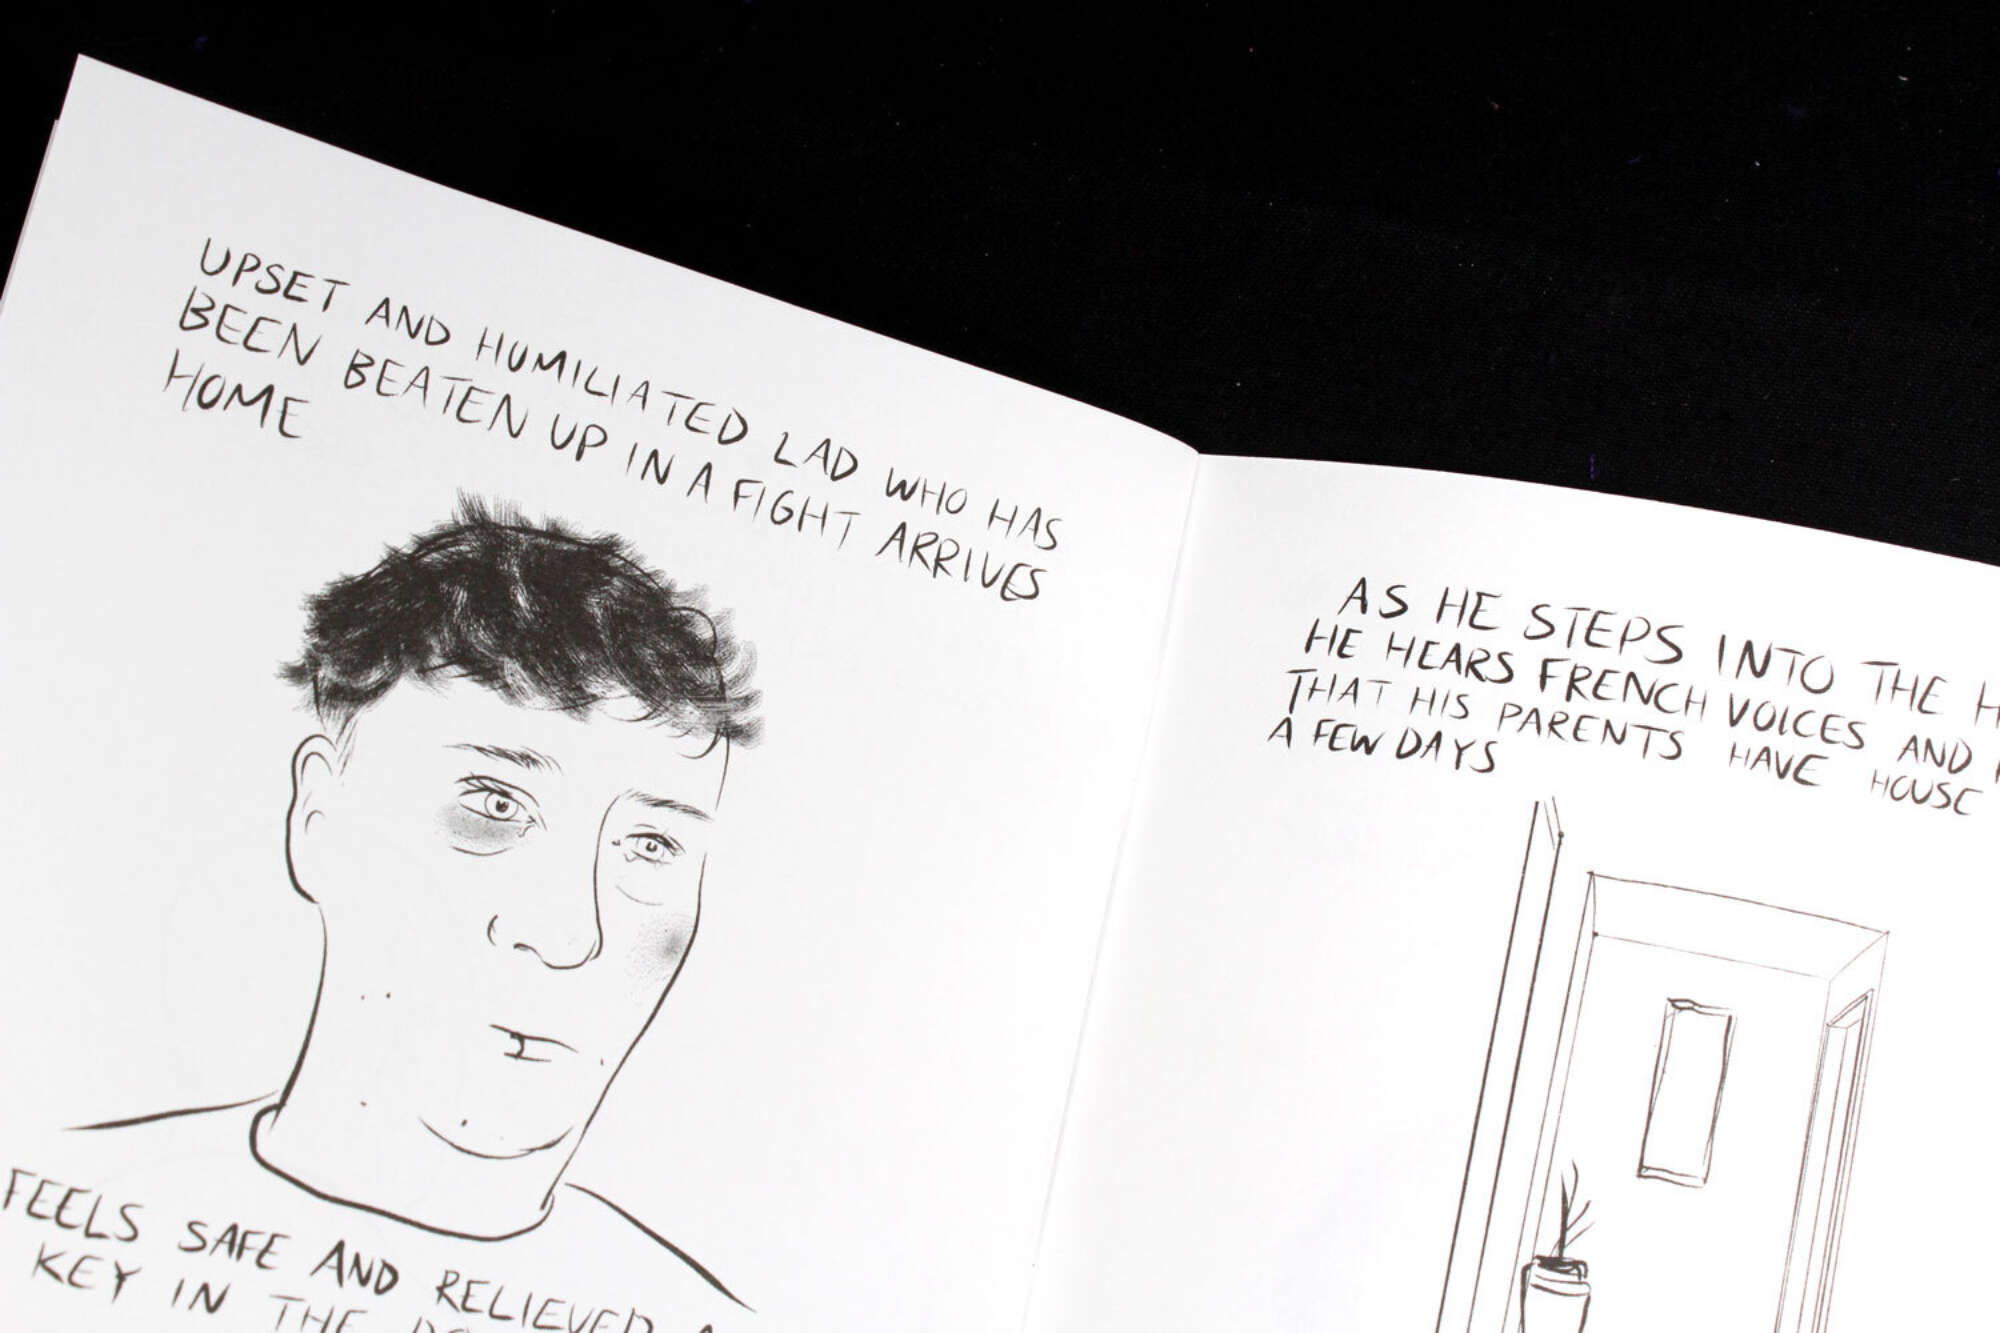 UPSET AND HUMILIATED LAD WHO HAS
BEEN BEATEN UP IN A FIGHT ARRIVES
HOME
FEELS SAFE AND RELIEVED
KEY IN THE
AS HE STEPS INTO THE
HE HEARS FRENCH VOICES AND
THAT HIS PARENTS HAVE HOUSE
A FEW DAYS